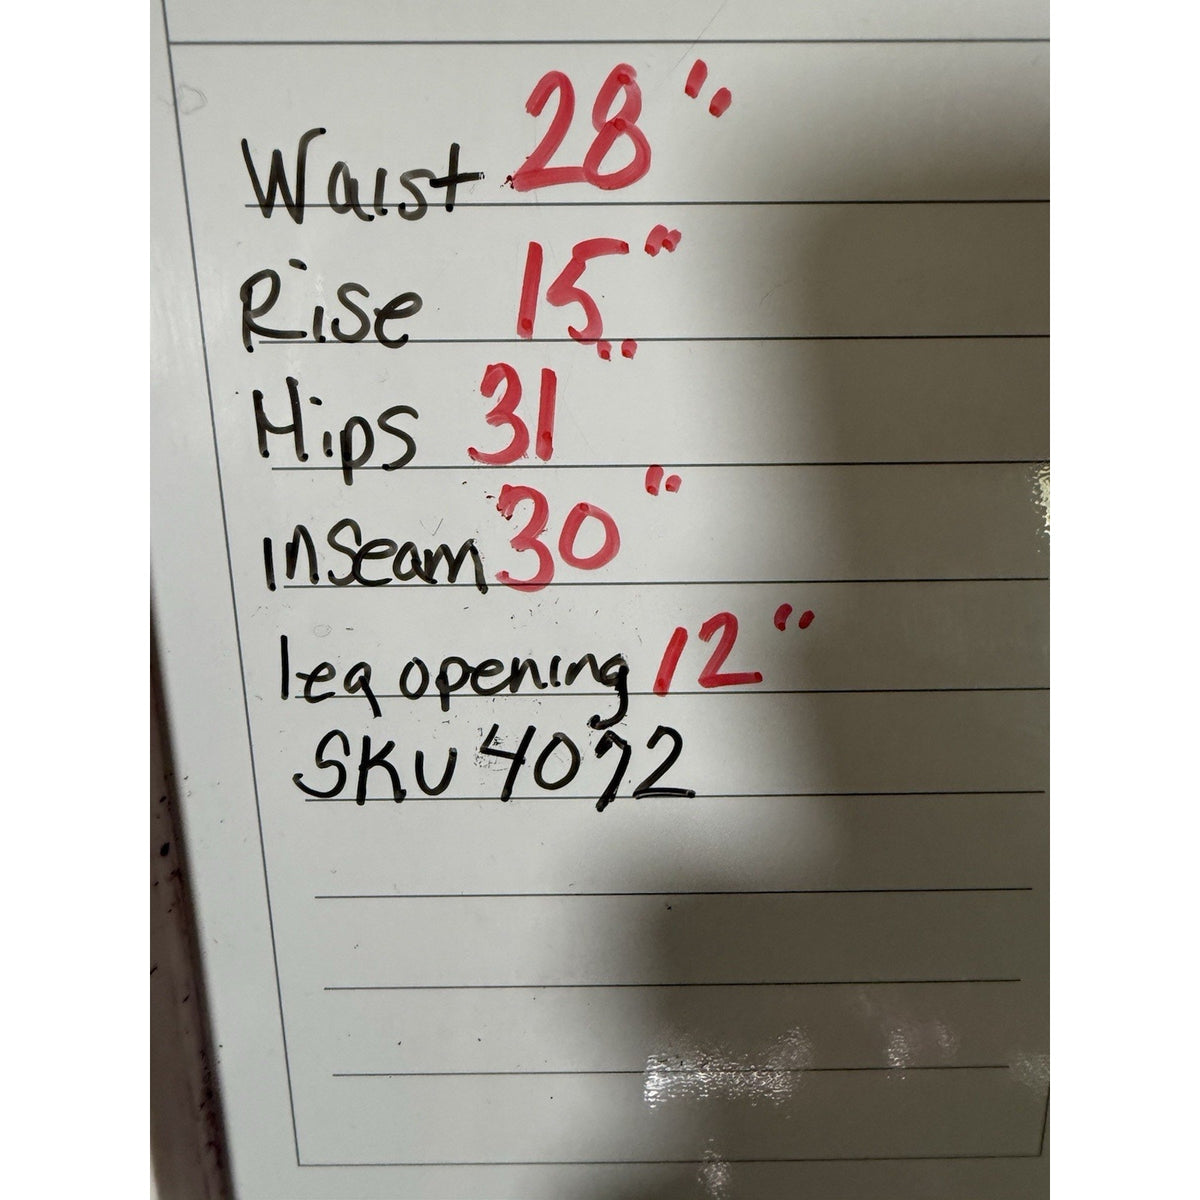 Waist 28"
Rise 15"
Hips 31"
inseam 30"
leg opening 12"
SKU 4072